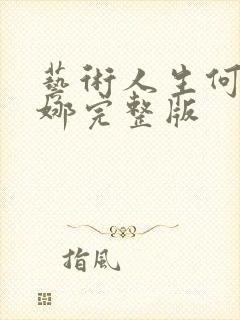 藝術人生何
娜完整版
指風